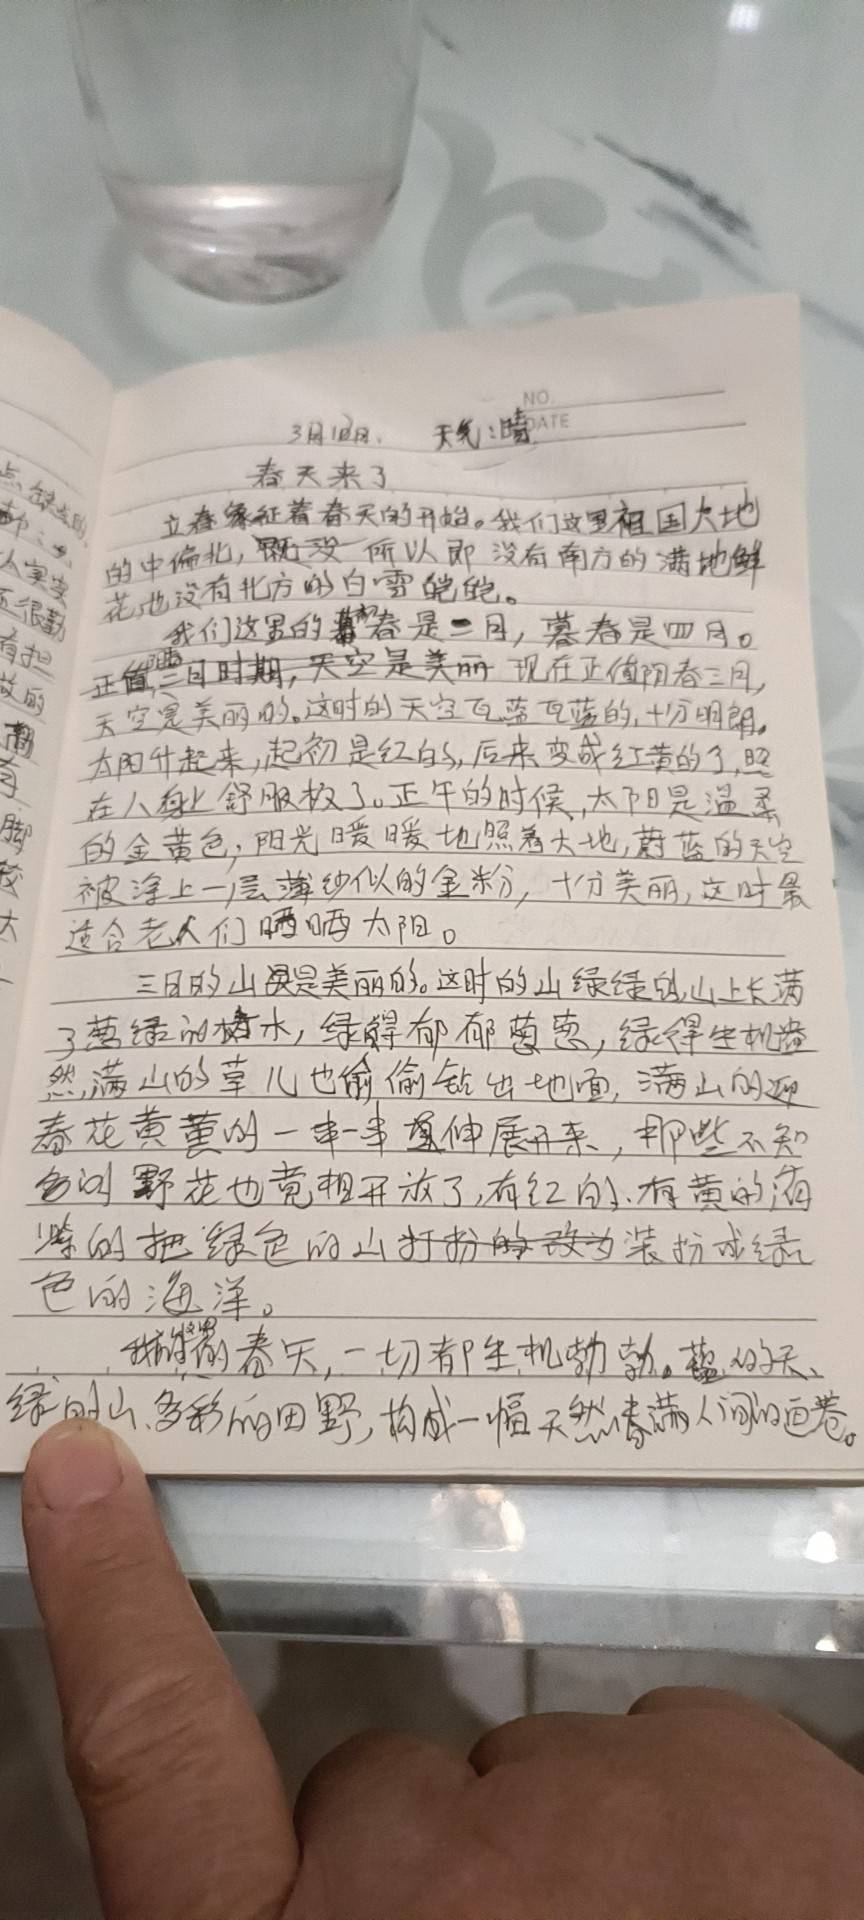 NO.
DATE
3月1日. 天气:晴
春天来了
立春象征着春天的开始。我们这里祖国大地
的中偏北, 既没 所以即没有南方的满地鲜
花,也没有北方的白雪皑皑。
我们这里的初春是二月, 暮春是四月。
正值三月时期, 天空是美丽 现在正值阳春三月,
天空是美丽的。这时的天空瓦蓝瓦蓝的,十分明朗。
太阳升起来,起初是红的,后来变成红黄的了,照
在人身上舒服极了。正午的时候,太阳是温柔
的金黄色,阳光暖暖地照着大地,蔚蓝的天空
被涂上一层薄纱似的金粉, 十分美丽,这时最
适合老人们晒晒太阳。
三月的山更是美丽的。这时的山绿绿的,山上长满
了葱绿的树木, 绿得郁郁葱葱, 绿得生机盎
然,满山的草儿也偷偷钻出地面, 满山的迎
春花黄黄的一串一串伸展开来, 那些不知
名的野花也竞相开放了,有红的、有黄的
的把绿色的山打扮的改为装扮成绿
色的海洋。
春天,一切都生机勃勃。蓝的天、
绿的山、多彩的田野, 构成一幅天然春满人间的画卷。